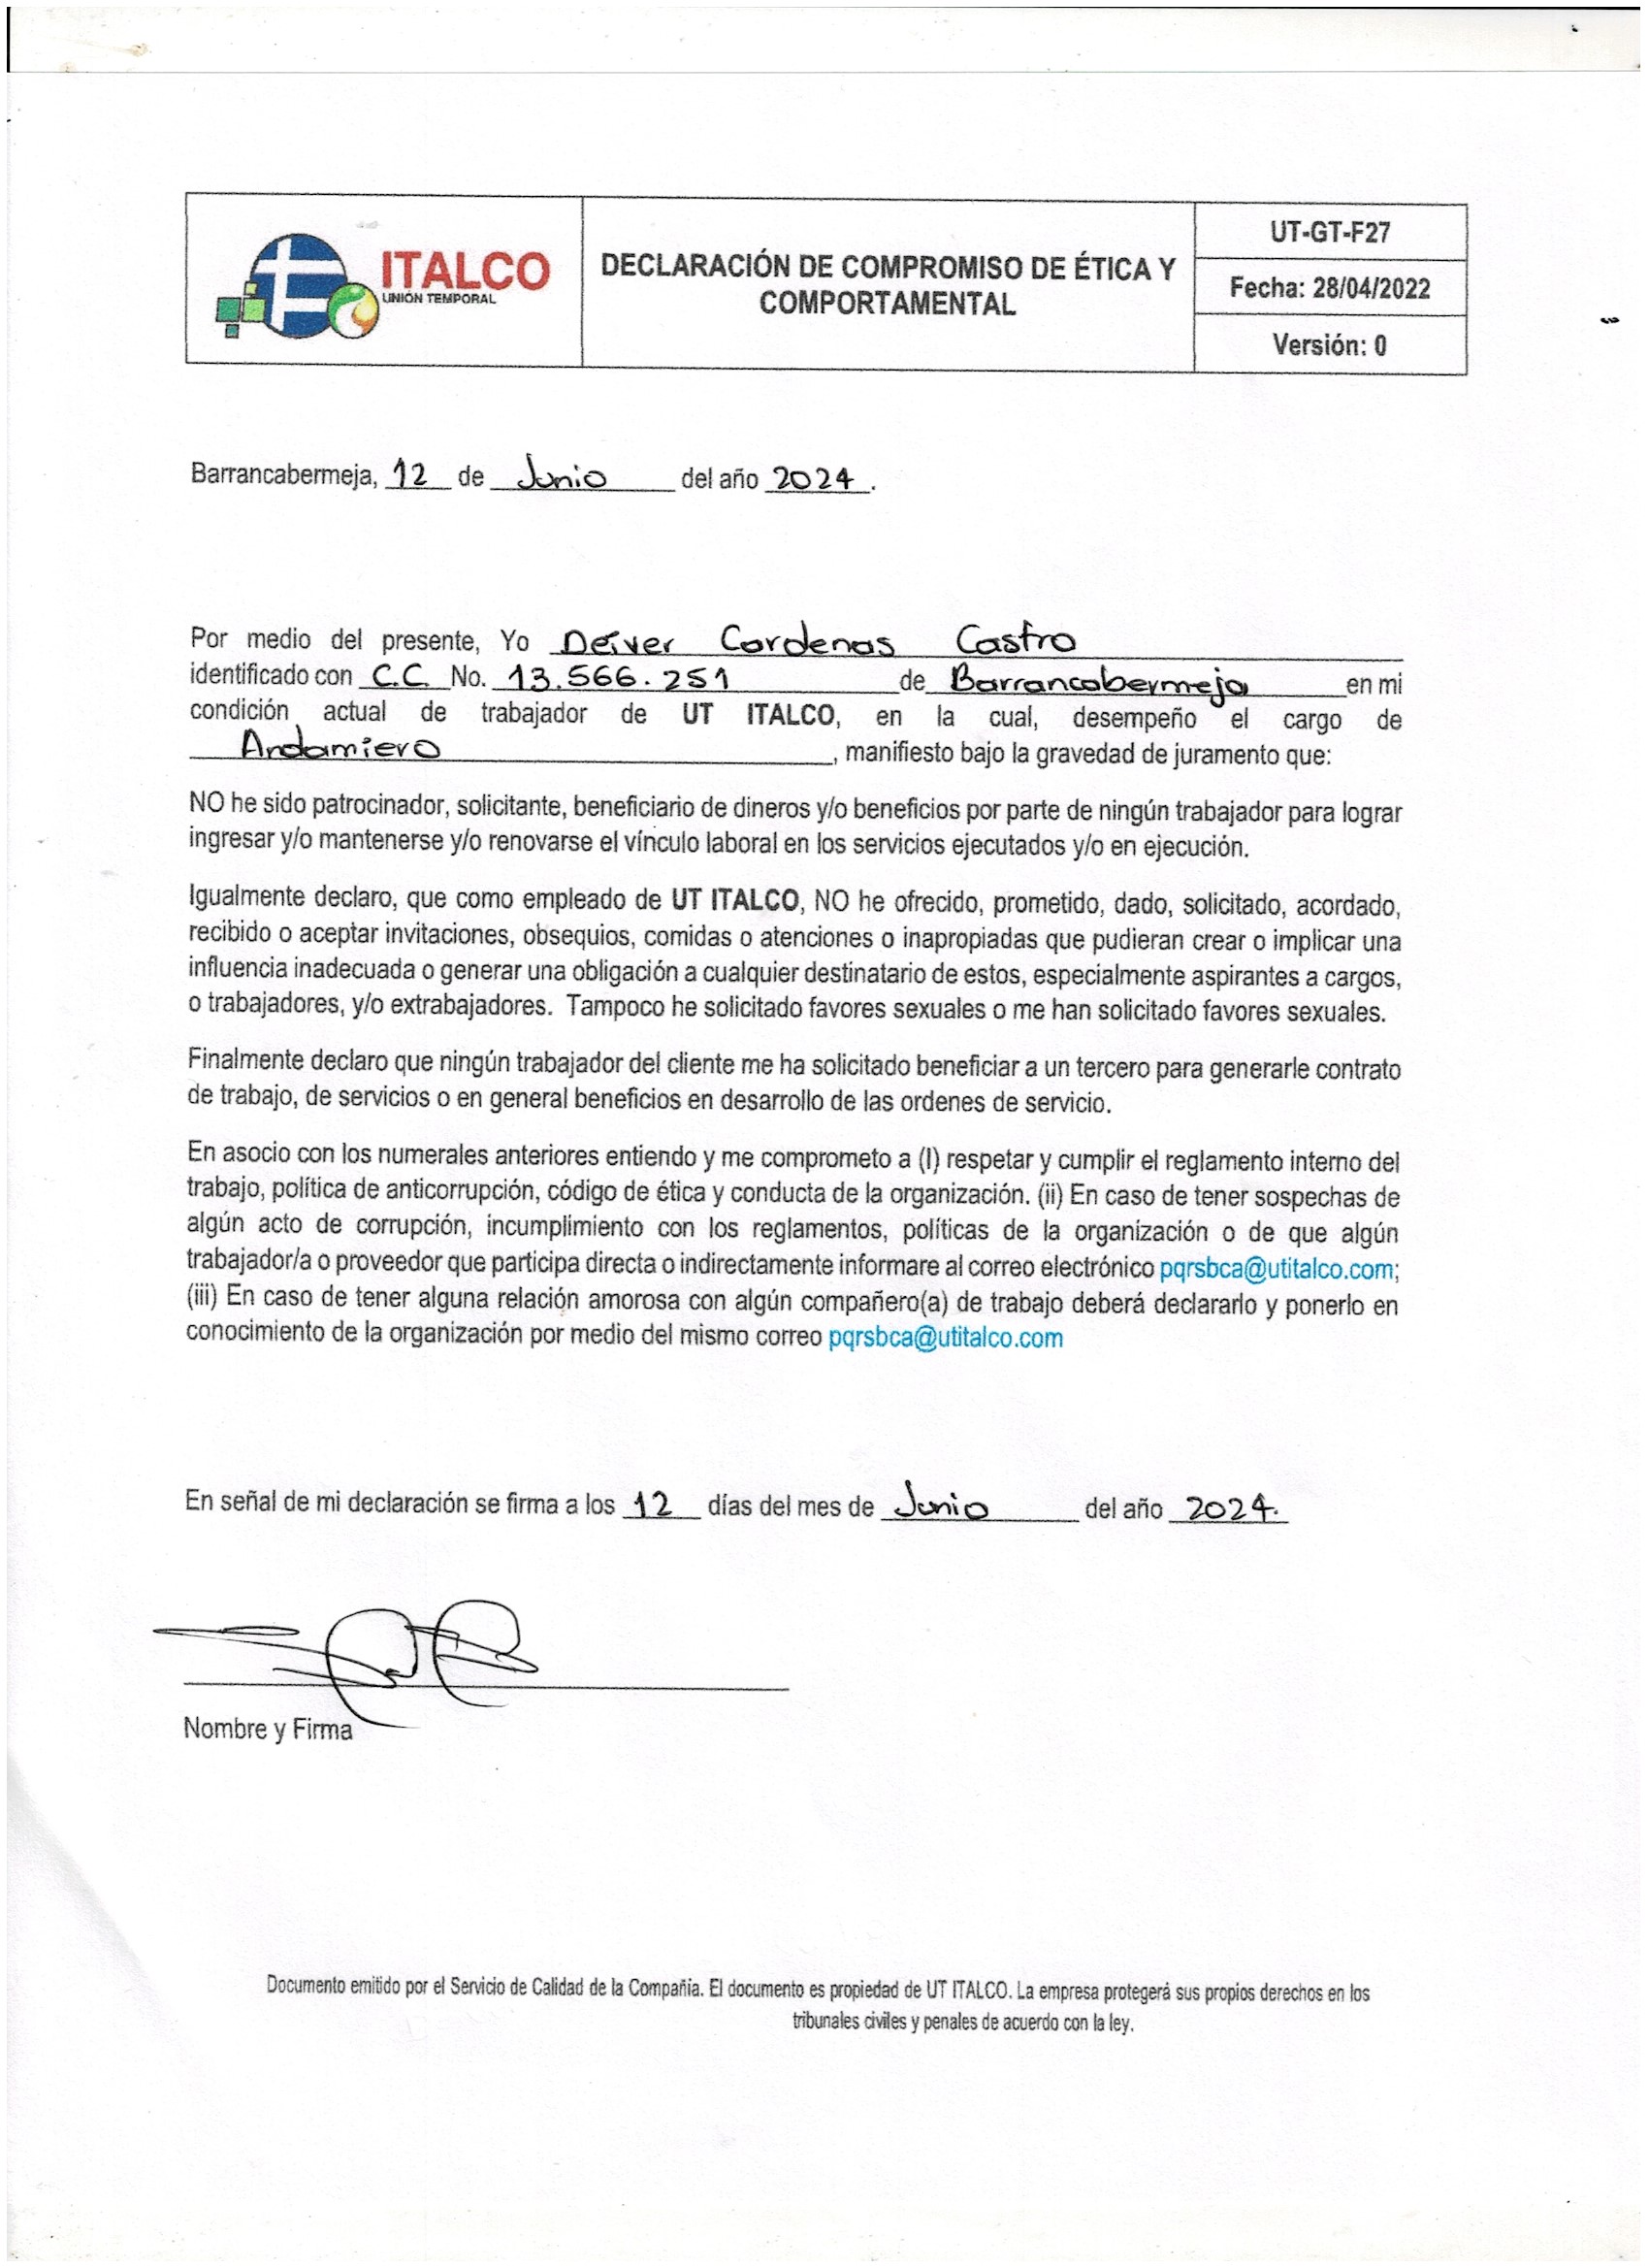 ITALCO
UNIÓN TEMPORAL
DECLARACIÓN DE COMPROMISO DE ÉTICA Y
COMPORTAMENTAL
UT-GT-F27
Fecha: 28/04/2022
Versión: 0
Barrancabermeja, 12 de Junio del año 2024.
Por medio del presente, Yo Deiver Cardenas Castro
identificado con C.C. No. 13.566.251 de Barrancabermeja en mi
condición actual de trabajador de UT ITALCO, en la cual, desempeño el cargo de
Andamiero, manifiesto bajo la gravedad de juramento que:
NO he sido patrocinador, solicitante, beneficiario de dineros y/o beneficios por parte de ningún trabajador para lograr
ingresar y/o mantenerse y/o renovarse el vínculo laboral en los servicios ejecutados y/o en ejecución.
Igualmente declaro, que como empleado de UT ITALCO, NO he ofrecido, prometido, dado, solicitado, acordado,
recibido o aceptar invitaciones, obsequios, comidas o atenciones o inapropiadas que pudieran crear o implicar una
influencia inadecuada o generar una obligación a cualquier destinatario de estos, especialmente aspirantes a cargos,
o trabajadores, y/o extrabajadores. Tampoco he solicitado favores sexuales o me han solicitado favores sexuales.
Finalmente declaro que ningún trabajador del cliente me ha solicitado beneficiar a un tercero para generarle contrato
de trabajo, de servicios o en general beneficios en desarrollo de las ordenes de servicio.
En asocio con los numerales anteriores entiendo y me comprometo a (I) respetar y cumplir el reglamento interno del
trabajo, política de anticorrupción, código de ética y conducta de la organización. (ii) En caso de tener sospechas de
algún acto de corrupción, incumplimiento con los reglamentos, políticas de la organización o de que algún
trabajador/a o proveedor que participa directa o indirectamente informare al correo electrónico pqrsbca@utitalco.com;
(iii) En caso de tener alguna relación amorosa con algún compañero(a) de trabajo deberá declararlo y ponerlo en
conocimiento de la organización por medio del mismo correo pqrsbca@utitalco.com
En señal de mi declaración se firma a los 12 días del mes de Junio del año 2024.
Nombre y Firma
Documento emitido por el Servicio de Calidad de la Compañia. El documento es propiedad de UT ITALCO. La empresa protegerá sus propios derechos en los
tribunales civiles y penales de acuerdo con la ley.